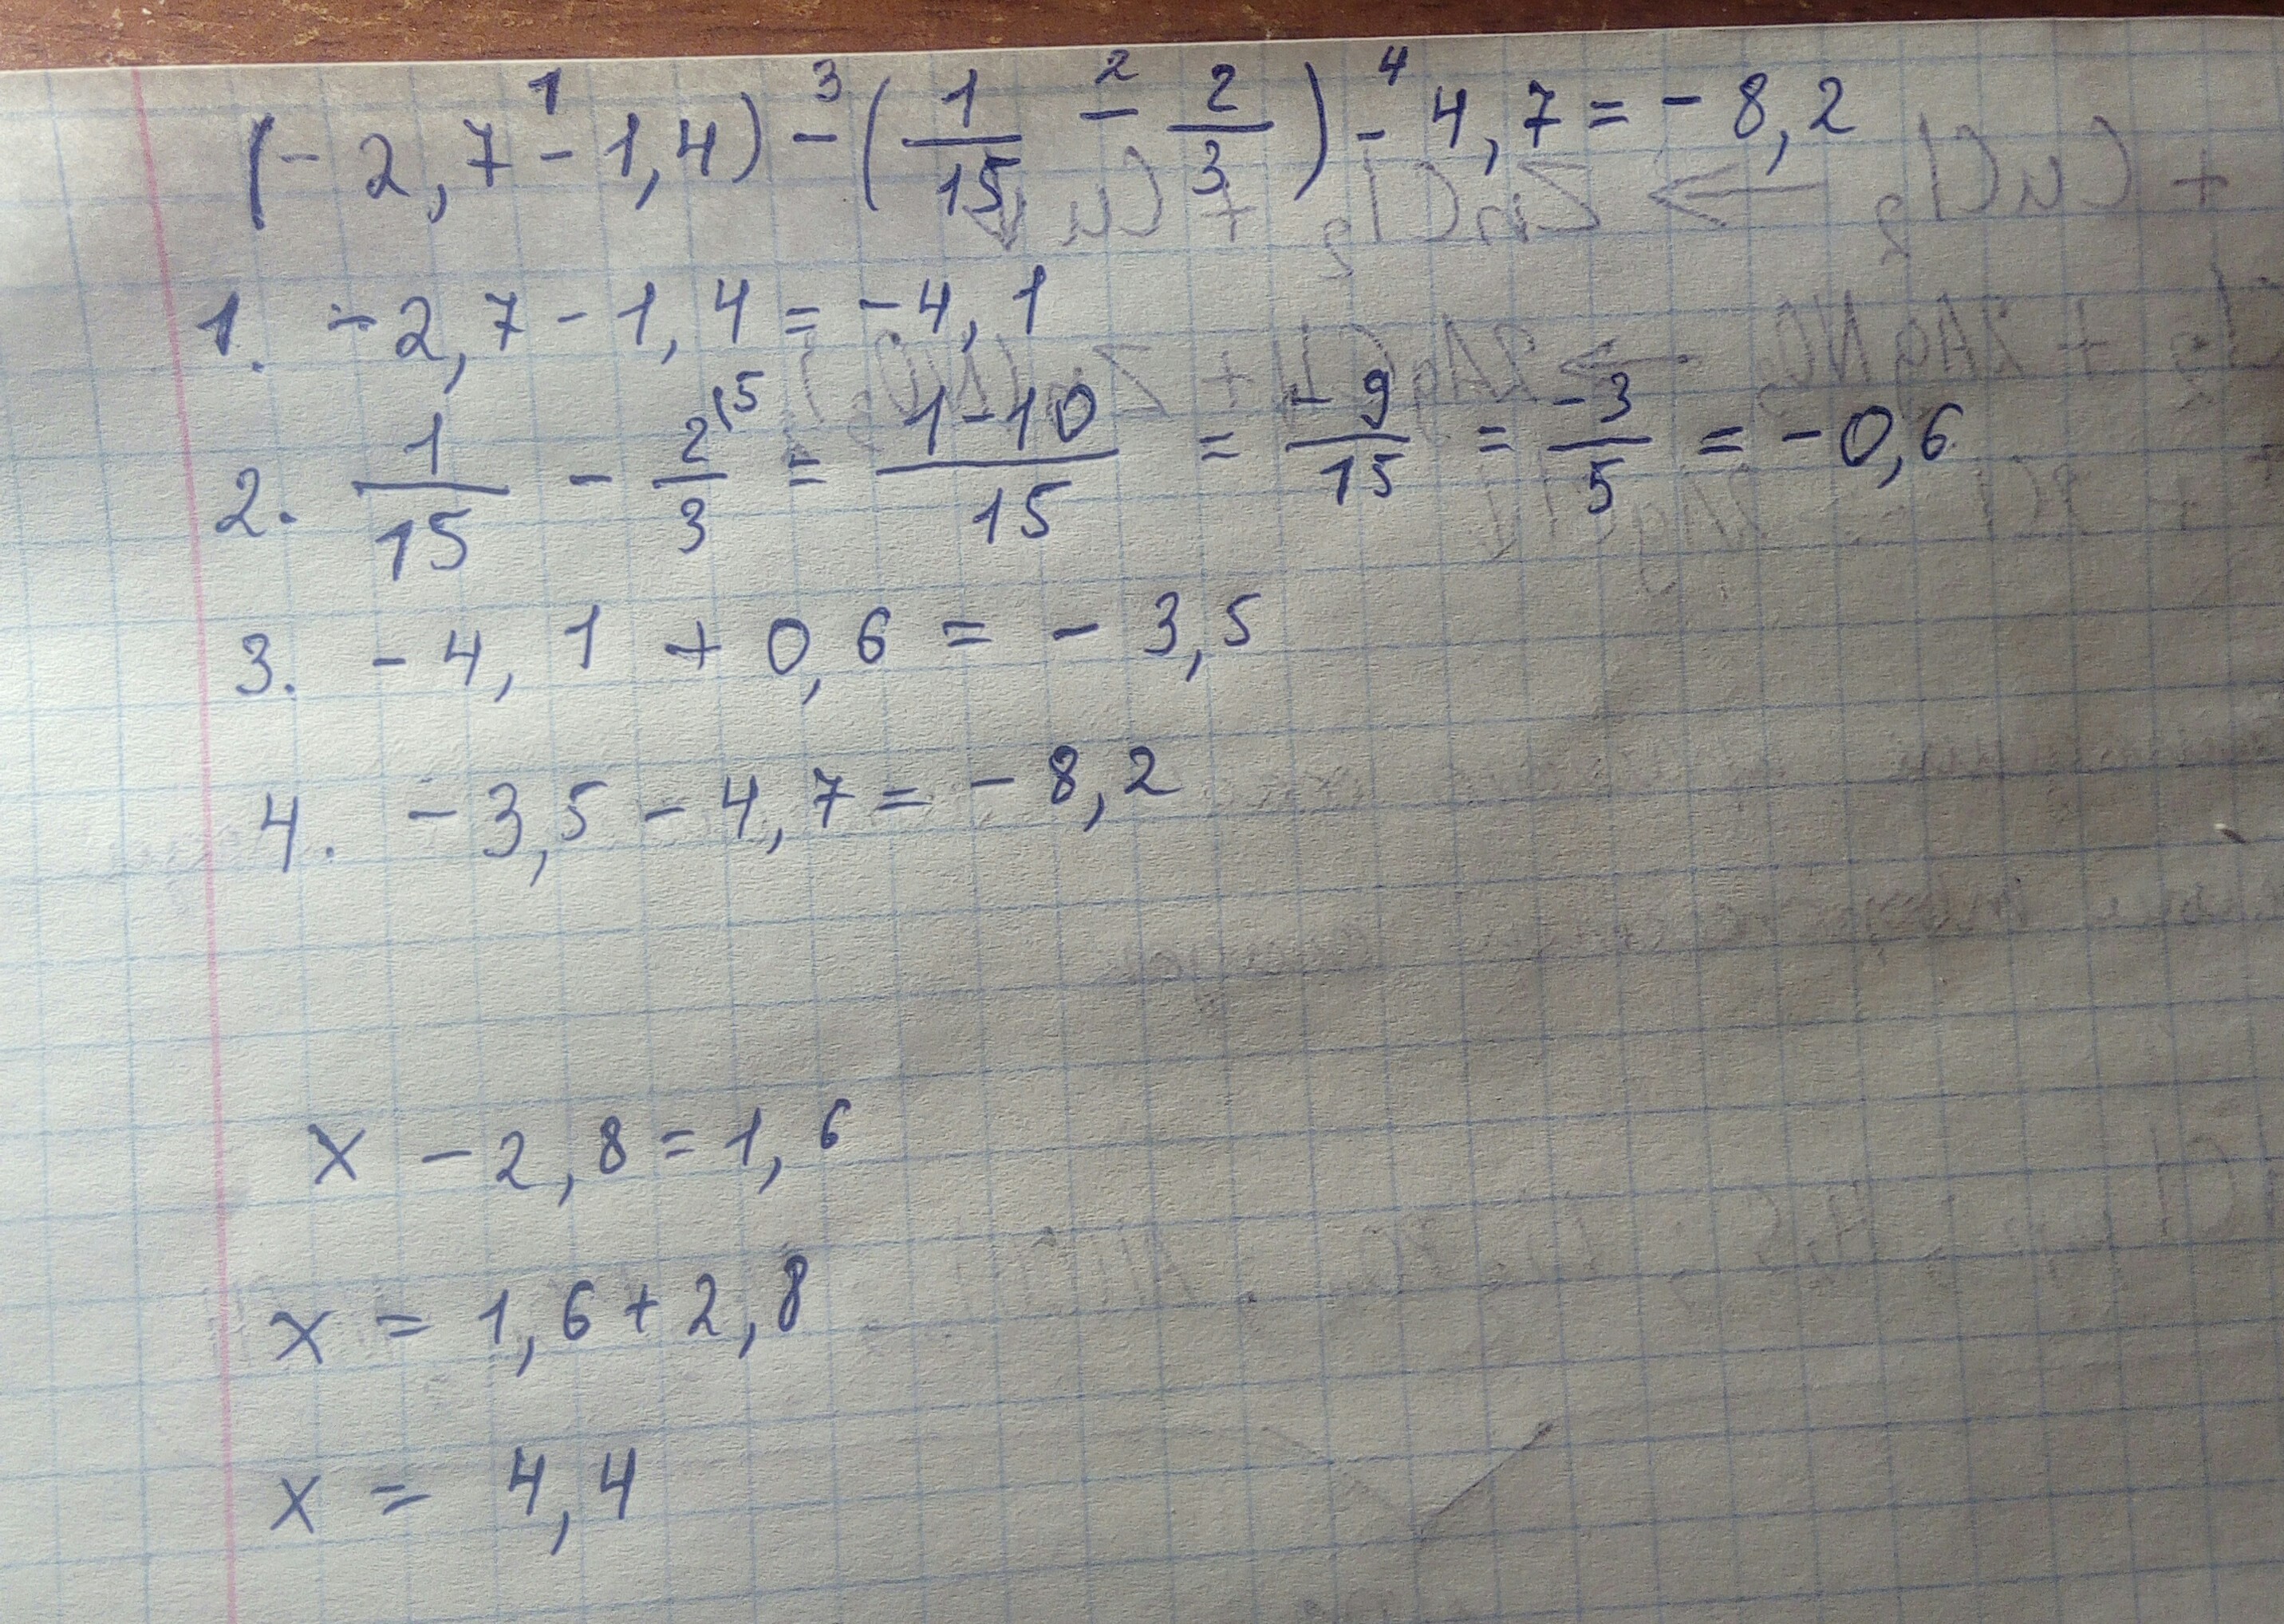 (-2,7 - 1,4) - (1/15 - 2/3) - 4,7 = -8,2
1. -2,7 - 1,4 = -4,1
2. 1/15 - 2/3 ⁽⁵ = 1-10/15 = -9/15 = -3/5 = -0,6
3. -4,1 + 0,6 = -3,5
4. -3,5 - 4,7 = -8,2
x - 2,8 = 1,6
x = 1,6 + 2,8
x = 4,4